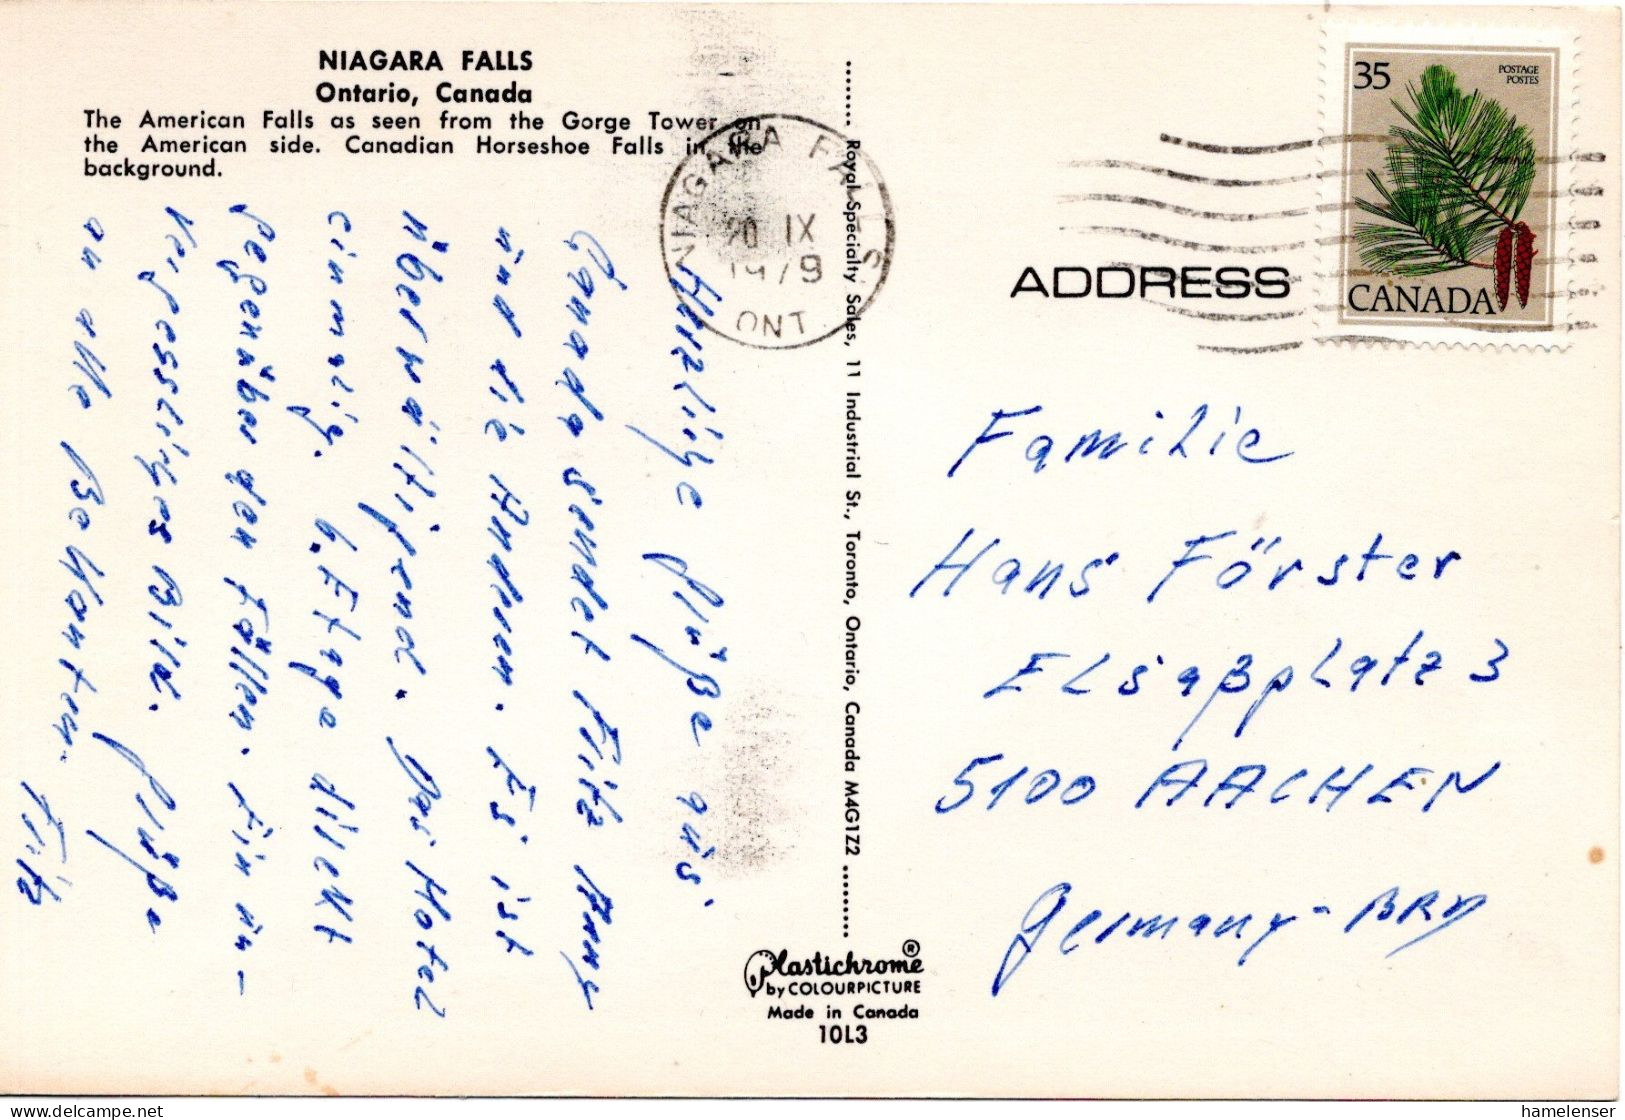 NIAGARA FALLS
Ontario, Canada
The American Falls as seen from the Gorge Tower on
the American side. Canadian Horseshoe Falls in the
background.
NIAGARA FALLS
20 IX
1979
ONT
35
POSTAGE
POSTES
CANADA
ADDRESS
Herzliche Grüße aus
Canada sendet Fritz
und die Anderen. Es ist
überwältigend. Das Hotel
einmalig. 6. Etage direkt
gegenüber den Fällen. Ein un-
vergessliches Bild. Grüße
an alle Bekannten.
Fritz
Royal Specialty Sales, 11 Industrial St., Toronto, Ontario, Canada M4G1Z2
Familie
Hans Förster
Elsaßplatz 3
5100 AACHEN
Germany-BRD
Plastichrome®
by COLOURPICTURE
Made in Canada
10L3
hip.com
hamelenser